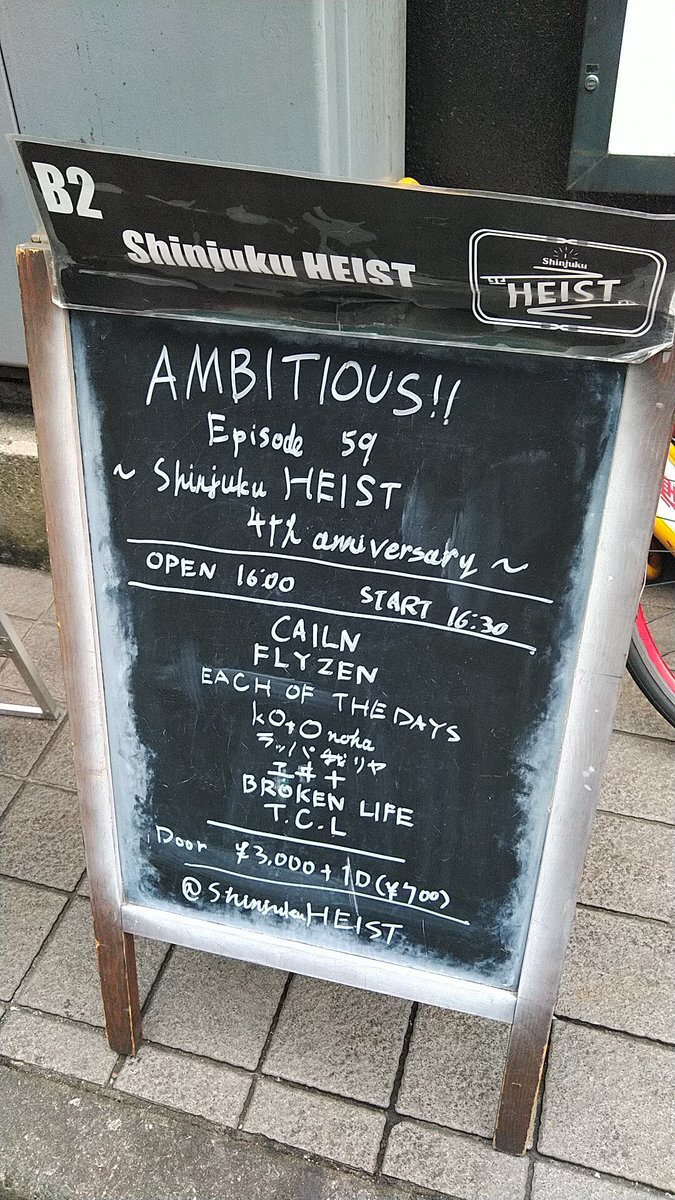 B2
Shinjuku HEIST
Shinjuku
HEIST
AMBITIOUS!!
Episode 59
~ Shinjuku HEIST
4th anniversary ~
OPEN 16:00 START 16:30
CAILN
FLYZEN
EACH OF THE DAYS
kOtOnoha
ラッパギリヤ
エキナ
BROKEN LIFE
T.C.L
Door ¥3,000+1D(¥700)
@Shinjuku HEIST